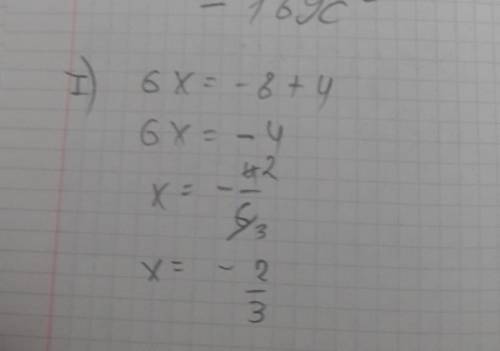 - 169c
I) 6x = -8 + 4
6x = -4
x = - 4 2 / 6 3
x = - 2/3